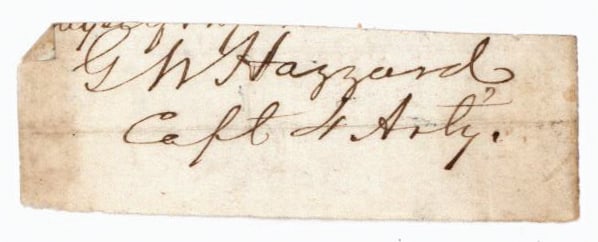 G W Hazzard
Capt 4 Arty.